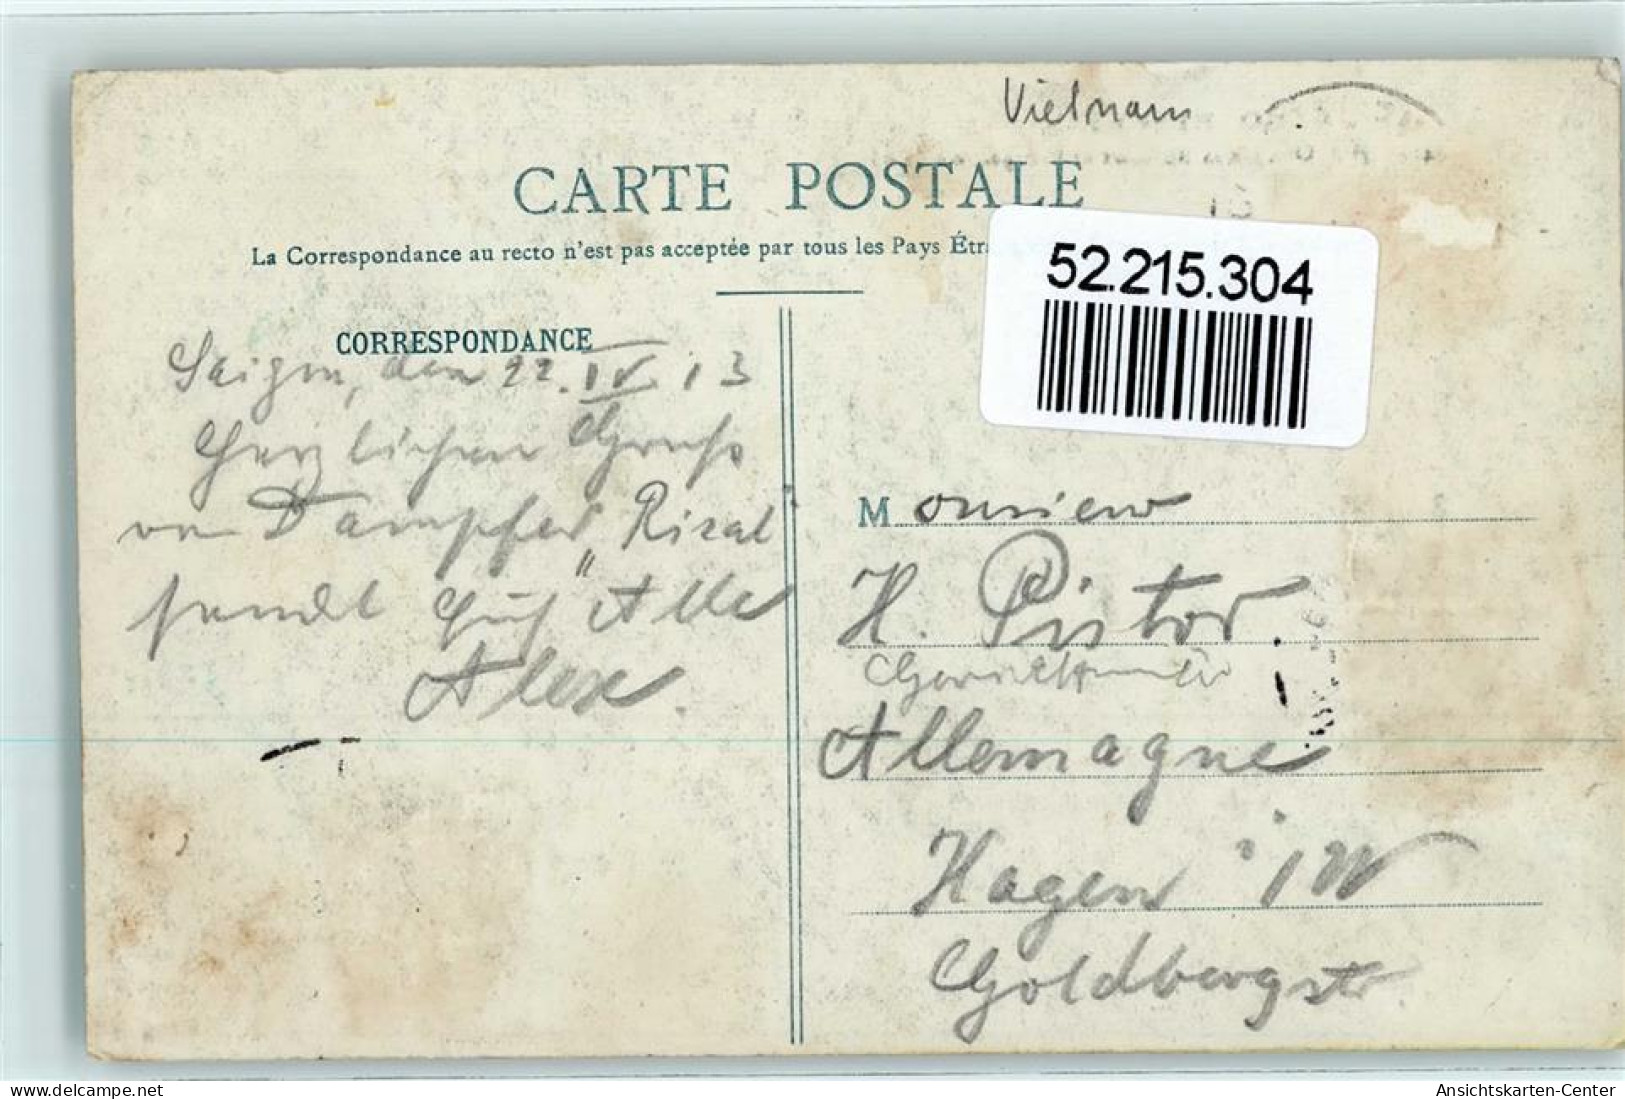 Vietnam
CARTE POSTALE
La Correspondance au recto n'est pas acceptée par tous les Pays Étra
52.215.304
CORRESPONDANCE
Saigon, den 22. IV 13
Herzlichen Gruß
von Dampfer „Rizal"
sendt Euch Alle
Alex.
Monsieur
H. Pistor.
Allemagne
Hagen i W
Goldbergstr.
Ansichtskarten-Center
delcampe.net